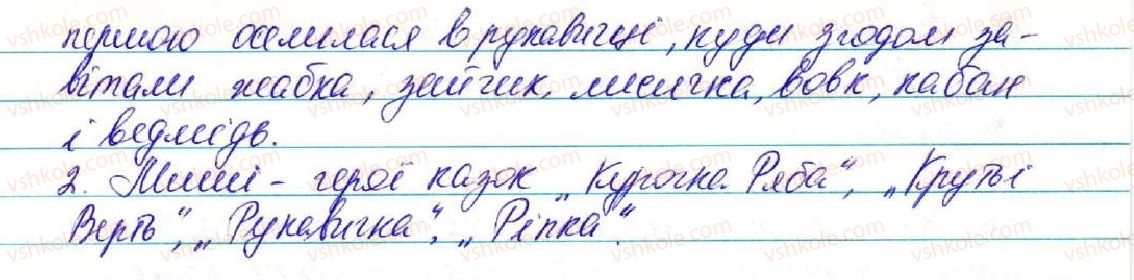 першою оселилася в рукавичці, куди згодом за-
вітали жабка, зайчик, лисичка, вовк, кабан
і ведмідь.
2. Миші - герої казок „Курочка Ряба“, „Круть і
Верть“, „Рукавичка“, „Ріпка“.